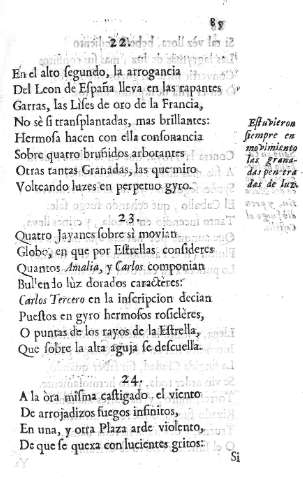 89
22.
En el alto ſegundo, la arrogancia
Del Leon de Eſpaña lleva en las rapantes
Garras, las Liſes de oro de la Francia,
No sè ſi transplantadas, mas brillantes:
Hermoſa hacen con ella conſonancia
Sobre quatro bruñidos arbotantes
Otras tantas Granadas, las que miro
Volteando luzes en perpetuo gyro.
Eſtuvieron
ſiempre en
movimiento
las grana-
das pen tra
das de luz.
23.
Quatro Jayanes ſobre si movian
Globo, en que por Eſtrellas, conſideres
Quantos Amalia, y Carlos componian
Bullen do lùz dorados caractères:
Carlos Tercero en la inscripcion decian
Pueſtos en gyro hermoſos roſiclères,
O puntas de los rayos de la Eſtrella,
Que ſobre la alta aguja ſe deſcuella.
24.
A la ora miſma caſtigado el viento
De arrojadizos fuegos infinitos,
En una, y otra Plaza arde violento,
De que ſe quexa con lucientes gritos:
Si